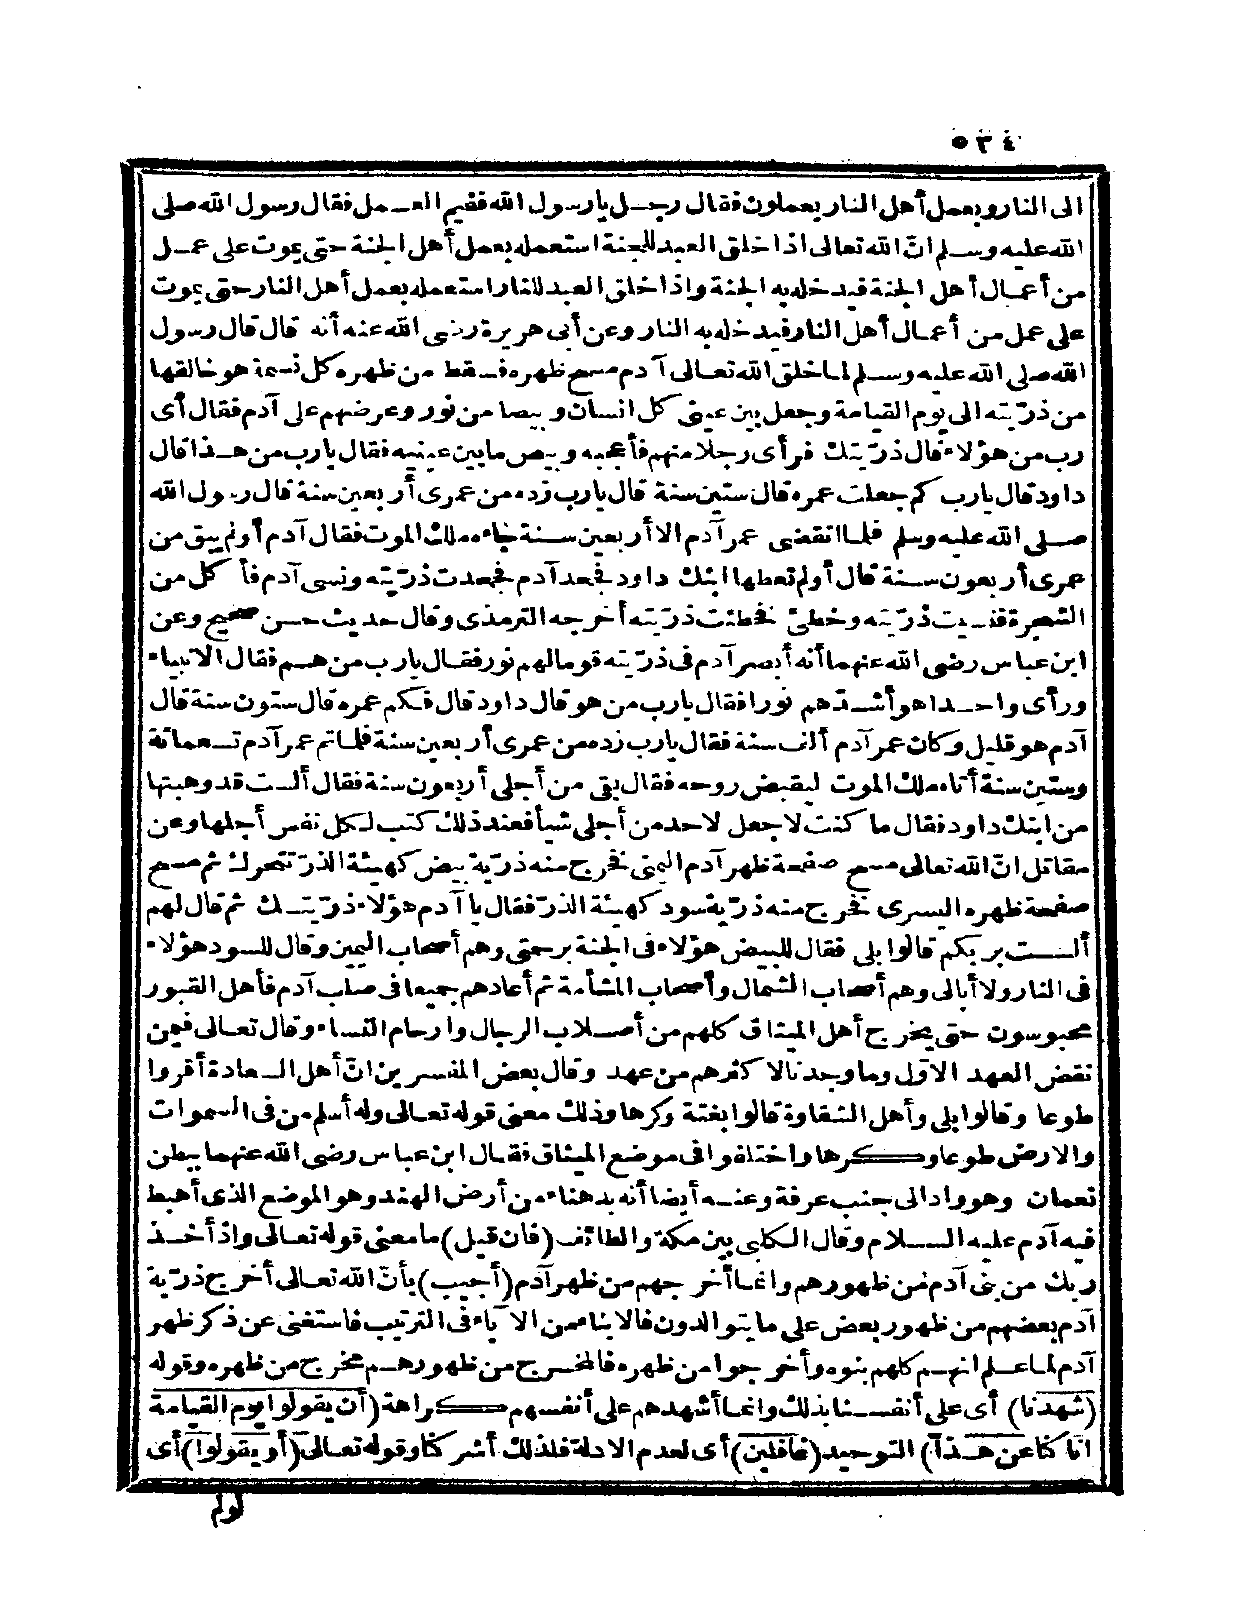 ٥٣٤
الى النار وبعمل أهل النار يعملون فقال رجل يا رسول الله ففيم العمل فقال رسول الله صلى
الله عليه وسلم انّ الله تعالى اذا خلق العبد للجنة استعمله بعمل أهل الجنة حتى يموت على عمل
من أعمال أهل الجنة فيدخله به الجنة واذا خلق العبد للنار استعمله بعمل أهل النار حتى يموت
على عمل من أعمال أهل النار فيدخله به النار وعن أبى هريرة رضى الله عنه أنه قال قال رسول
الله صلى الله عليه وسلم لما خلق الله تعالى آدم مسح ظهره فسقط من ظهره كل نسمة هو خالقها
من ذرّيته الى يوم القيامة وجعل بين عينى كل انسان وبيصا من نور وعرضهم على آدم فقال أى
رب من هؤلاء قال ذرّيتك فرأى رجلا منهم فأعجبه وبيص ما بين عينيه فقال يا رب من هذا قال
داود قال يا رب كم جعلت عمره قال ستين سنة قال يا رب زده من عمرى أربعين سنة قال رسول الله
صلى الله عليه وسلم فلما انقضى عمر آدم الا أربعين سنة جاءه ملك الموت فقال آدم أولم يبق من
عمرى أربعون سنة قال أولم تعطها ابنك داود فجحد آدم فجحدت ذرّيته ونسى آدم فأكل من
الشجرة فنسيت ذرّيته وخطئ فخطئت ذرّيته أخرجه الترمذى وقال حديث حسن صحيح وعن
ابن عباس رضى الله عنهما أنه أبصر آدم فى ذرّيته قوما لهم نور فقال يا رب من هم فقال الانبياء
ورأى واحدا هو أشدّهم نورا فقال يا رب من هو قال داود قال فكم عمره قال ستون سنة قال
آدم هو قليل وكان عمر آدم ألف سنة فقال يا رب زده من عمرى أربعين سنة فلما تم عمر آدم تسعمائة
وستين سنة أتاه ملك الموت ليقبض روحه فقال بقى من أجلى أربعون سنة فقال ألست قد وهبتها
من ابنك داود فقال ما كنت لاجعل لاحد من أجلى شيأ فعند ذلك كتب لكل نفس أجلها وعن
مقاتل انّ الله تعالى مسح صفحة ظهر آدم اليمنى فخرج منه ذرّية بيض كهيئة الذرّ تتحرك ثم مسح
صفحة ظهره اليسرى فخرج منه ذرّية سود كهيئة الذرّ فقال يا آدم هؤلاء ذرّيتك ثم قال لهم
ألست بربكم قالوا بلى فقال للبيض هؤلاء فى الجنة برحمتى وهم أصحاب اليمين وقال للسود هؤلاء
فى النار ولا أبالى وهم أصحاب الشمال وأصحاب المشأمة ثم أعادهم جميعا فى صلب آدم فأهل القبور
محبوسون حتى يخرج أهل الميثاق كلهم من أصلاب الرجال وارحام النساء وقال تعالى فيمن
نقض العهد الاوّل وما وجدنا لاكثرهم من عهد وقال بعض المفسرين انّ أهل السعادة أقروا
طوعا وقالوا بلى وأهل الشقاوة قالوا بغتة وكرها وذلك معنى قوله تعالى وله أسلم من فى السموات
والارض طوعا وكرها واختلفوا فى موضع الميثاق فقال ابن عباس رضى الله عنهما ببطن
نعمان وهو واد الى جنب عرفة وعنه أيضا أنه بدهناء من أرض الهند وهو الموضع الذى أهبط
فيه آدم عليه السلام وقال الكلبى بين مكة والطائف (فان قيل) ما معنى قوله تعالى واذ أخذ
ربك من بنى آدم من ظهورهم وانما أخرجهم من ظهر آدم (أجيب) بأنّ الله تعالى أخرج ذرّية
آدم بعضهم من ظهور بعض على ما يتوالدون فالابناء من الآباء فى الترتيب فاستغنى عن ذكر ظهر
آدم لما علم انهم كلهم بنوه وأخرجوا من ظهره فالمخرج من ظهورهم مخرج من ظهره وقوله
(شهدنا) أى على أنفسنا بذلك وانما أشهدهم على أنفسهم كراهة (أن يقولوا يوم القيامة
انّا كنا عن هذا) التوحيد (غافلين) أى لعدم الادلة فلذلك أشركنا وقوله تعالى (أو يقولوا) أى
لولم